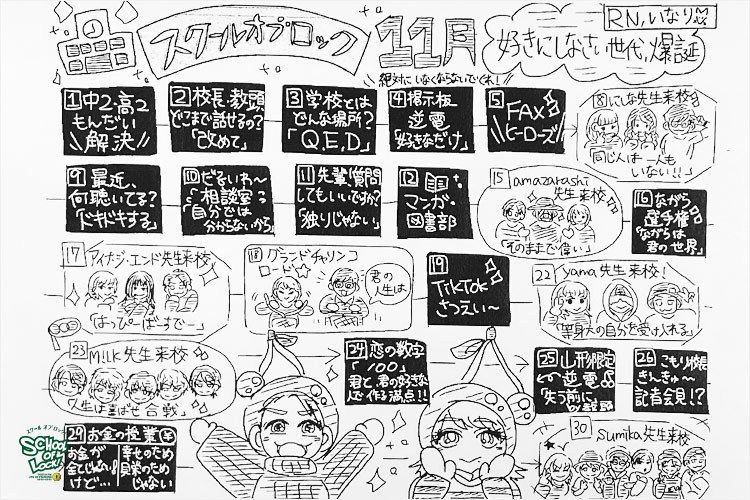 RN.いなり
スクールオブロック
11月
好きにしなさい世代、爆誕
絶対にいなくならないでくれ!
1 中2・高2
もんだい
\\解決//
2 校長・教頭
どこまで話せるの?
「改めて」
3 学校とは
どんな場所?
「Q.E.D」
4 掲示板
逆電
「好きなだけ」
5 FAX
ヒーローズ
8 にしな先生来校
同じ人は一人も
いない!!
9 最近、
何聴いてる?
「ドキドキする」
10 だるいわ〜
相談室
「自分では
分からないから」
11 先輩!質問
してもいいですか?
「独りじゃない」
12
マンガ
図書部
15 amazarashi
先生来校
「そのままで偉い」
16 ながら
選手権
「ながらは
君の世界」
17 アイナジ・エンド先生来校
「はっぴーばーすでー」
18 グランドチャリンコ
ロード☆
君の
人生は
19
TikTok
さつえい〜
22 yama先生来校!
「等身大の自分を受け入れる」
23 M!LK先生来校
「人生は喜ばせ合戦」
24 恋の数字
「100」
君と君の好きな
人で作る満点!!
25 山形限定
逆電
「失う前に」
26 こもり校長
きんきゅ〜
記者会見!?
29 お金の授業
お金が
全てじゃない
けど…
幸せのため
見栄のため
じゃない
30 sumika先生来校
スクールオブロック
SCHOOL
OF
LOCK!